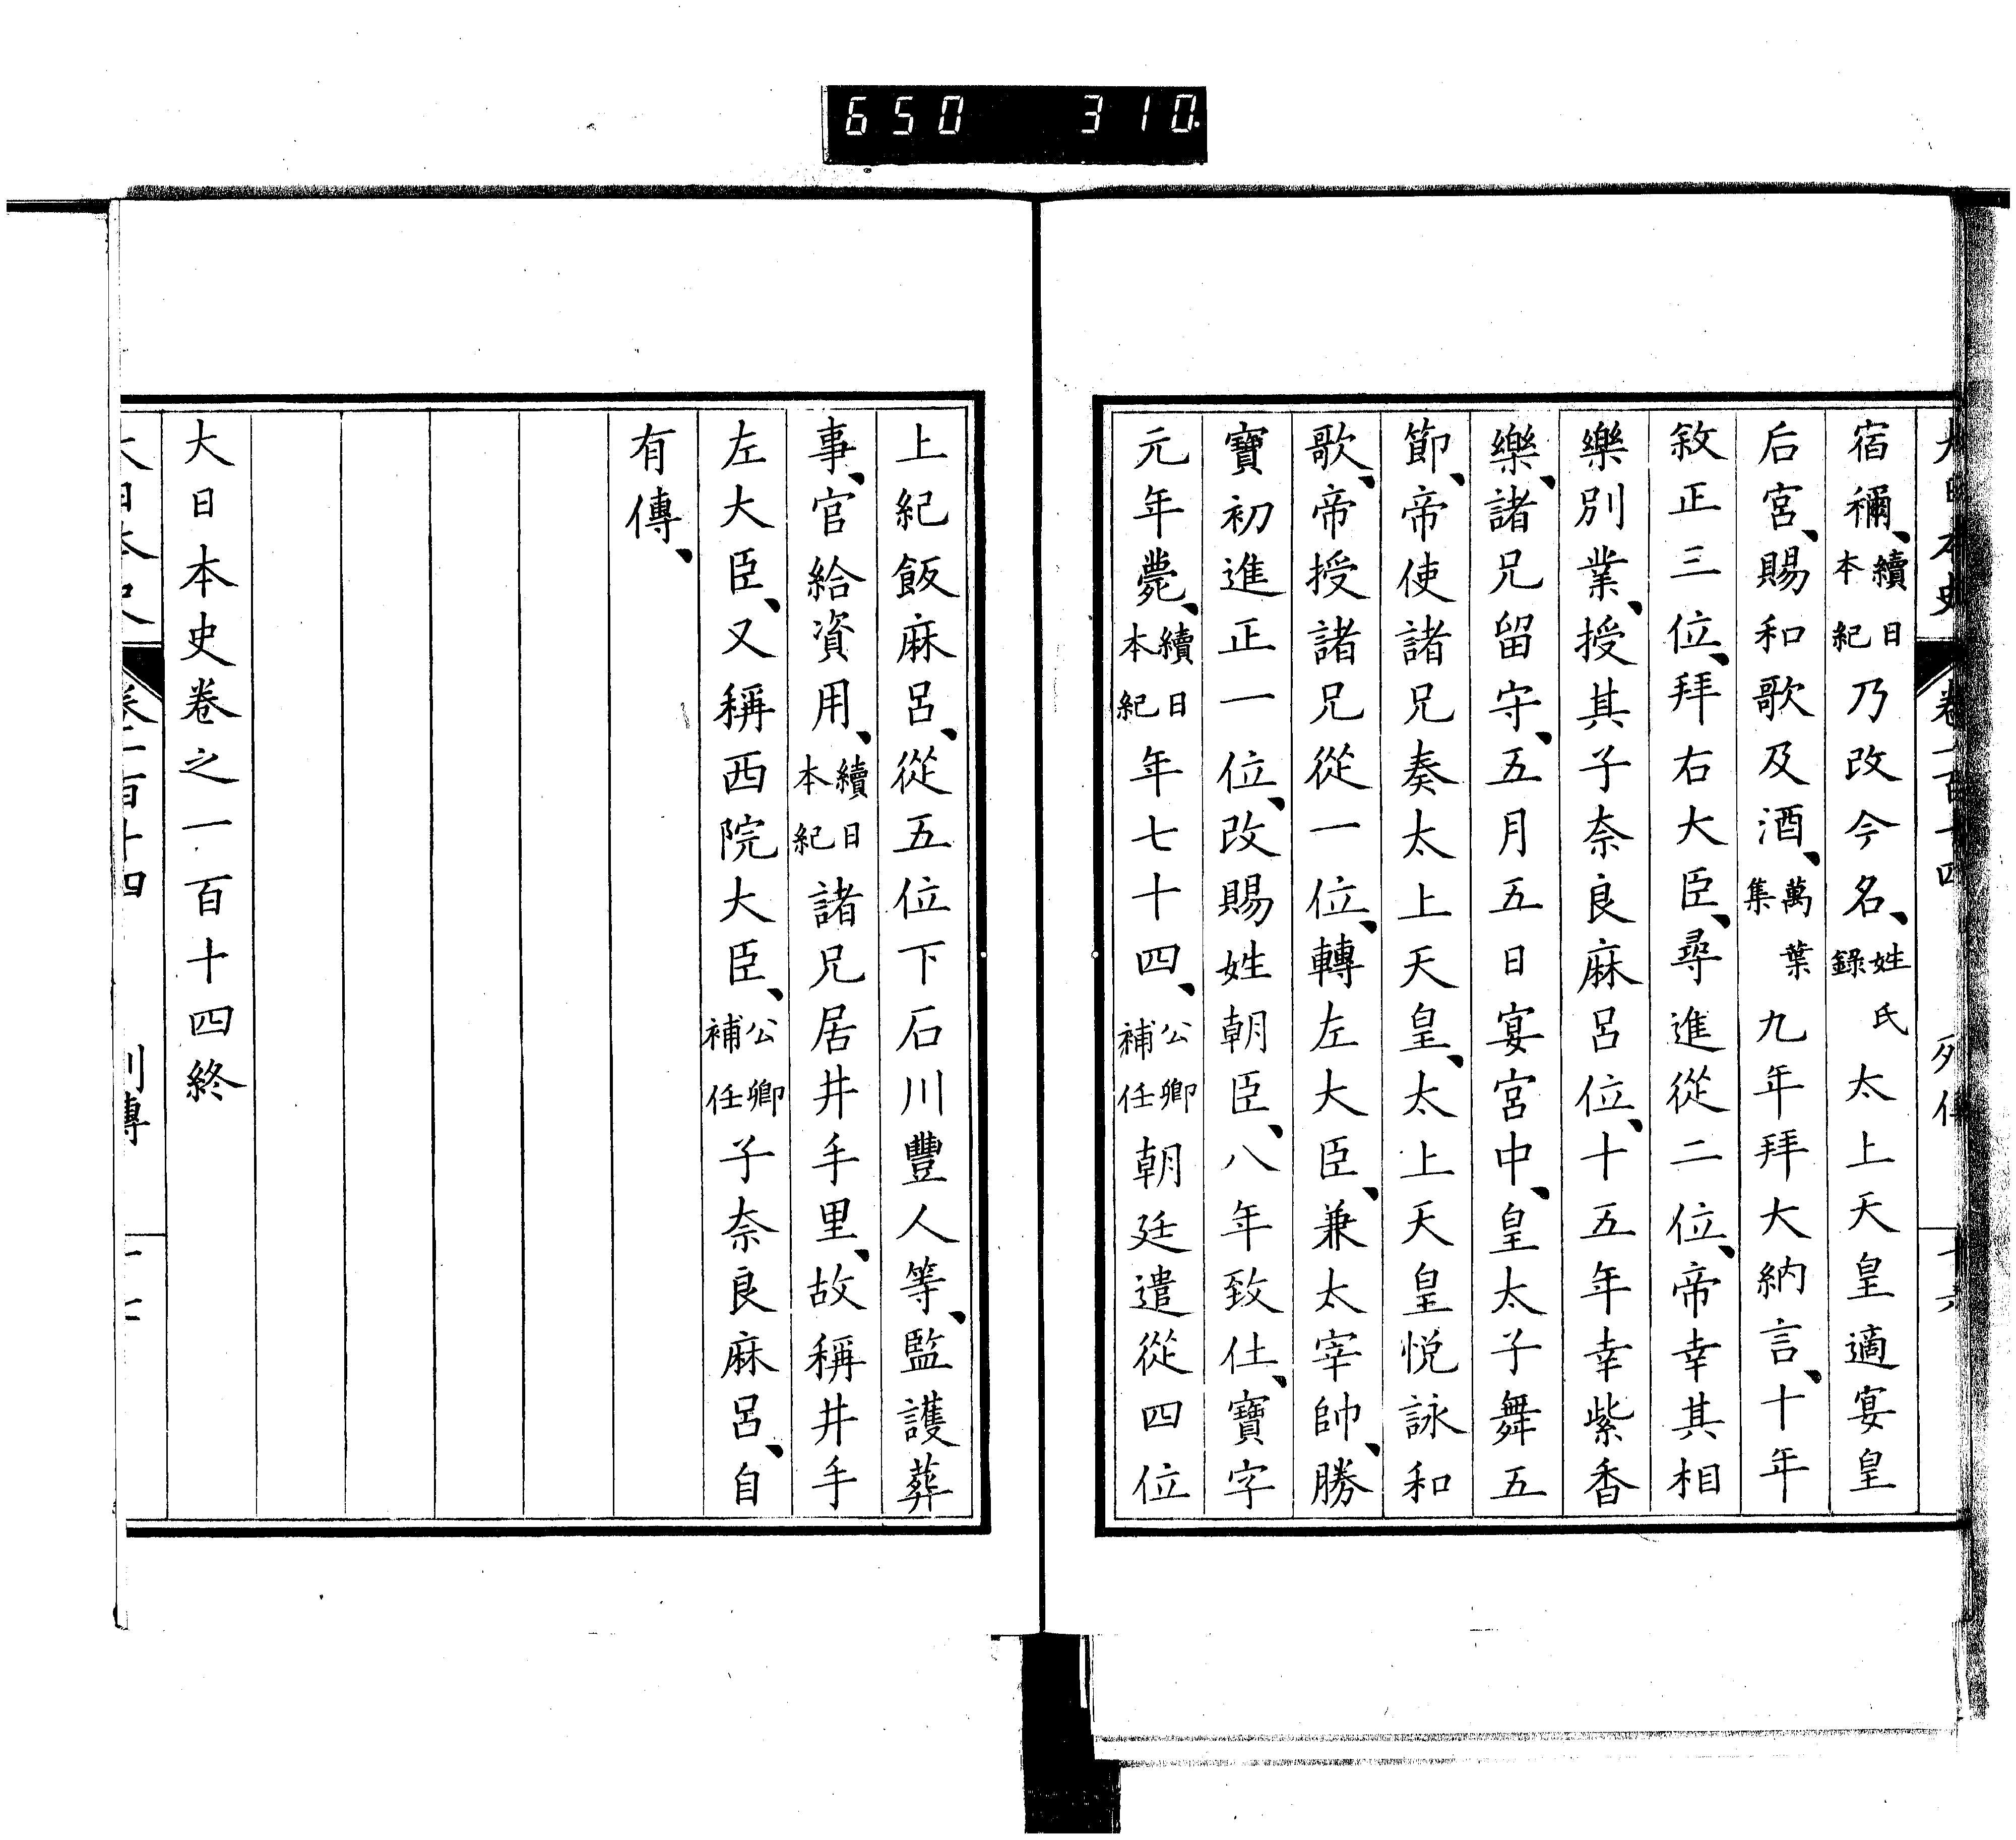 650 310
大日本史 卷一百十四 列傳 十六
宿禰、續日本紀乃改今名、姓氏錄太上天皇適宴皇
后宮、賜和歌及酒、萬葉集九年拜大納言、十年
敘正三位、拜右大臣、尋進從二位、帝幸其相
樂別業、授其子奈良麻呂位、十五年幸紫香
樂、諸兄留守、五月五日宴宮中、皇太子舞五
節、帝使諸兄奏太上天皇、太上天皇悅詠和
歌、帝授諸兄從一位、轉左大臣、兼太宰帥、勝
寶初進正一位、改賜姓朝臣、八年致仕、寶字
元年薨、續日本紀年七十四、公卿補任朝廷遣從四位
上紀飯麻呂、從五位下石川豐人等、監護葬
事、官給資用、續日本紀諸兄居井手里、故稱井手
左大臣、又稱西院大臣、公卿補任子奈良麻呂、自
有傳、
大日本史卷之一百十四終
大日本史 卷一百十四 列傳 十七